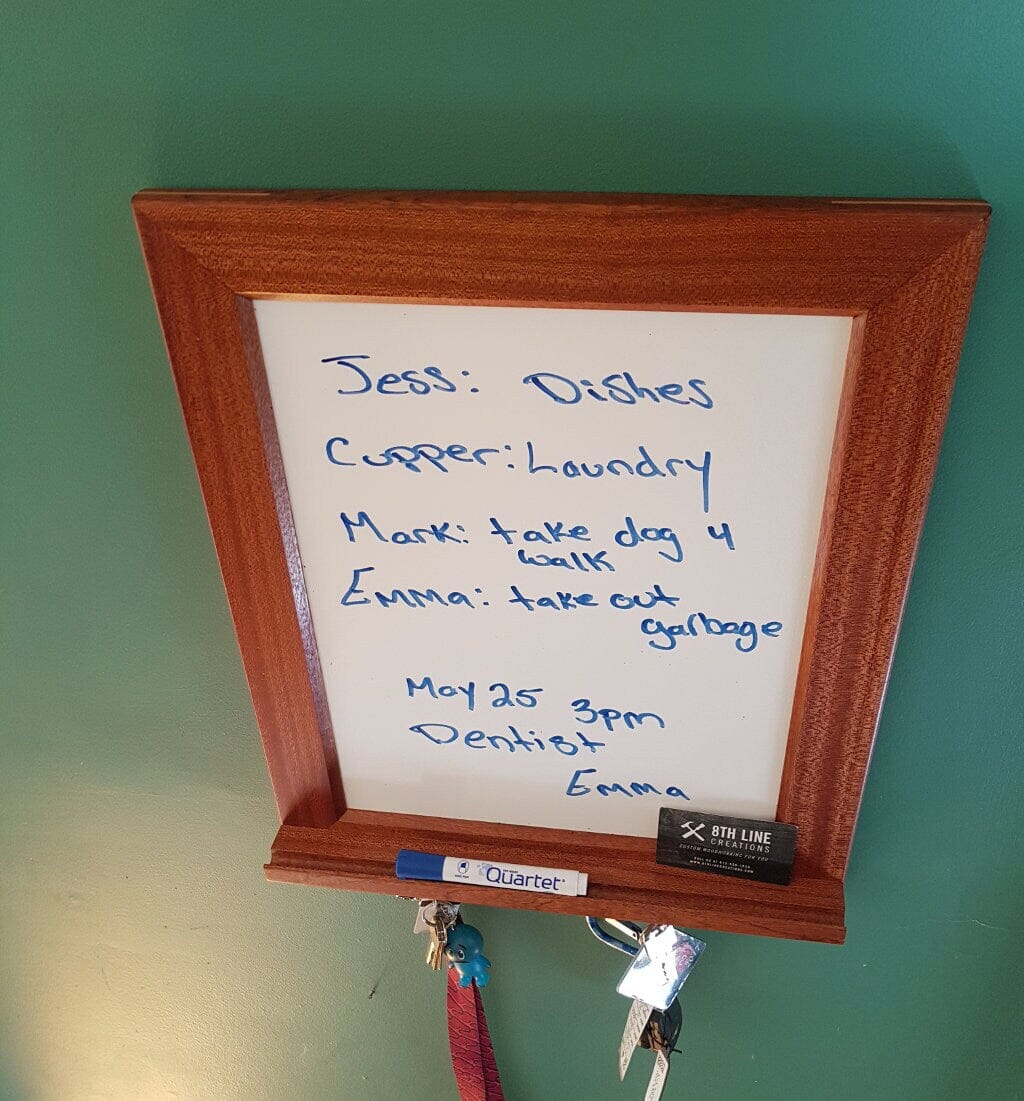 Jess: Dishes
Cupper: Laundry
Mark: take dog 4
walk
Emma: take out
garbage
May 25 3pm
Dentist
Emma
8TH LINE
CREATIONS
CUSTOM WOODWORKING FOR YOU
WWW.8THLINECREATIONS.COM
Quartet